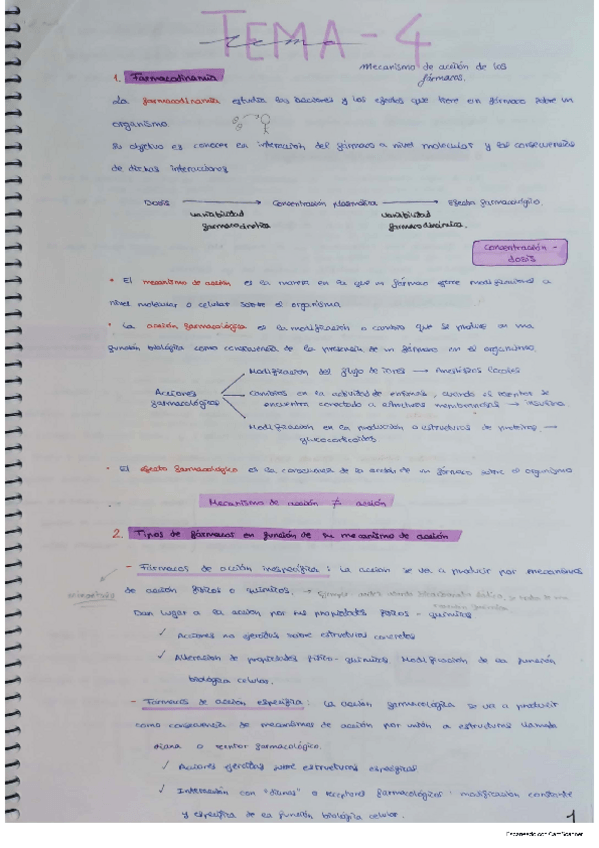 TEMA - 4
Mecanismo de acción de los
fármacos.
1. Farmacodinamia
La farmacodinamia estudia las acciones y los efectos que tiene un fármaco sobre un
organismo.
Su objetivo es conocer la interacción del fármaco a nivel molecular y las consecuencias
de dichas interacciones
Dosis → Concentración plasmática → Efecto farmacológico.
variabilidad farmacocinética
variabilidad farmacodinámica.
Concentración -
dosis
• El mecanismo de acción es la manera en la que un fármaco ejerce modificaciones a
nivel molecular o celular sobre el organismo
• La acción farmacológica es la modificación o cambio que se produce en una
función biológica como consecuencia de la presencia de un fármaco en el organismo.
Acciones
farmacológicas
Modificación del flujo de iones → Anestésicos locales
Cambios en la actividad de enzimas, cuando el receptor se
encuentra conectado a estructuras membranosas → insulina.
Modificación en la producción o estructuras de proteínas →
glucocorticoides
• El efecto farmacológico es la consecuencia de la acción de un fármaco sobre el organismo
Mecanismo de acción ≠ acción
2. Tipos de fármacos en función de su mecanismo de acción
- Fármacos de acción inespecífica: La acción se va a producir por mecanismos
de acción físicos o químicos.
Dan lugar a la acción por sus propiedades físico - químicas
✓ Acciones no ejercidas sobre estructuras concretas
✓ Alteración de propiedades físico-químicas Modificación de la función
biológica celular.
- Fármacos de acción específica: La acción farmacológica se va a producir
como consecuencia de mecanismos de acción por unión a estructuras llamada
diana o receptor farmacológico.
✓ Acciones ejercidas sobre estructuras específicas
✓ Interacción con "dianas" o receptores farmacológicos: modificación constante
y específica de la función biológica celular.
1
Escaneado con CamScanner